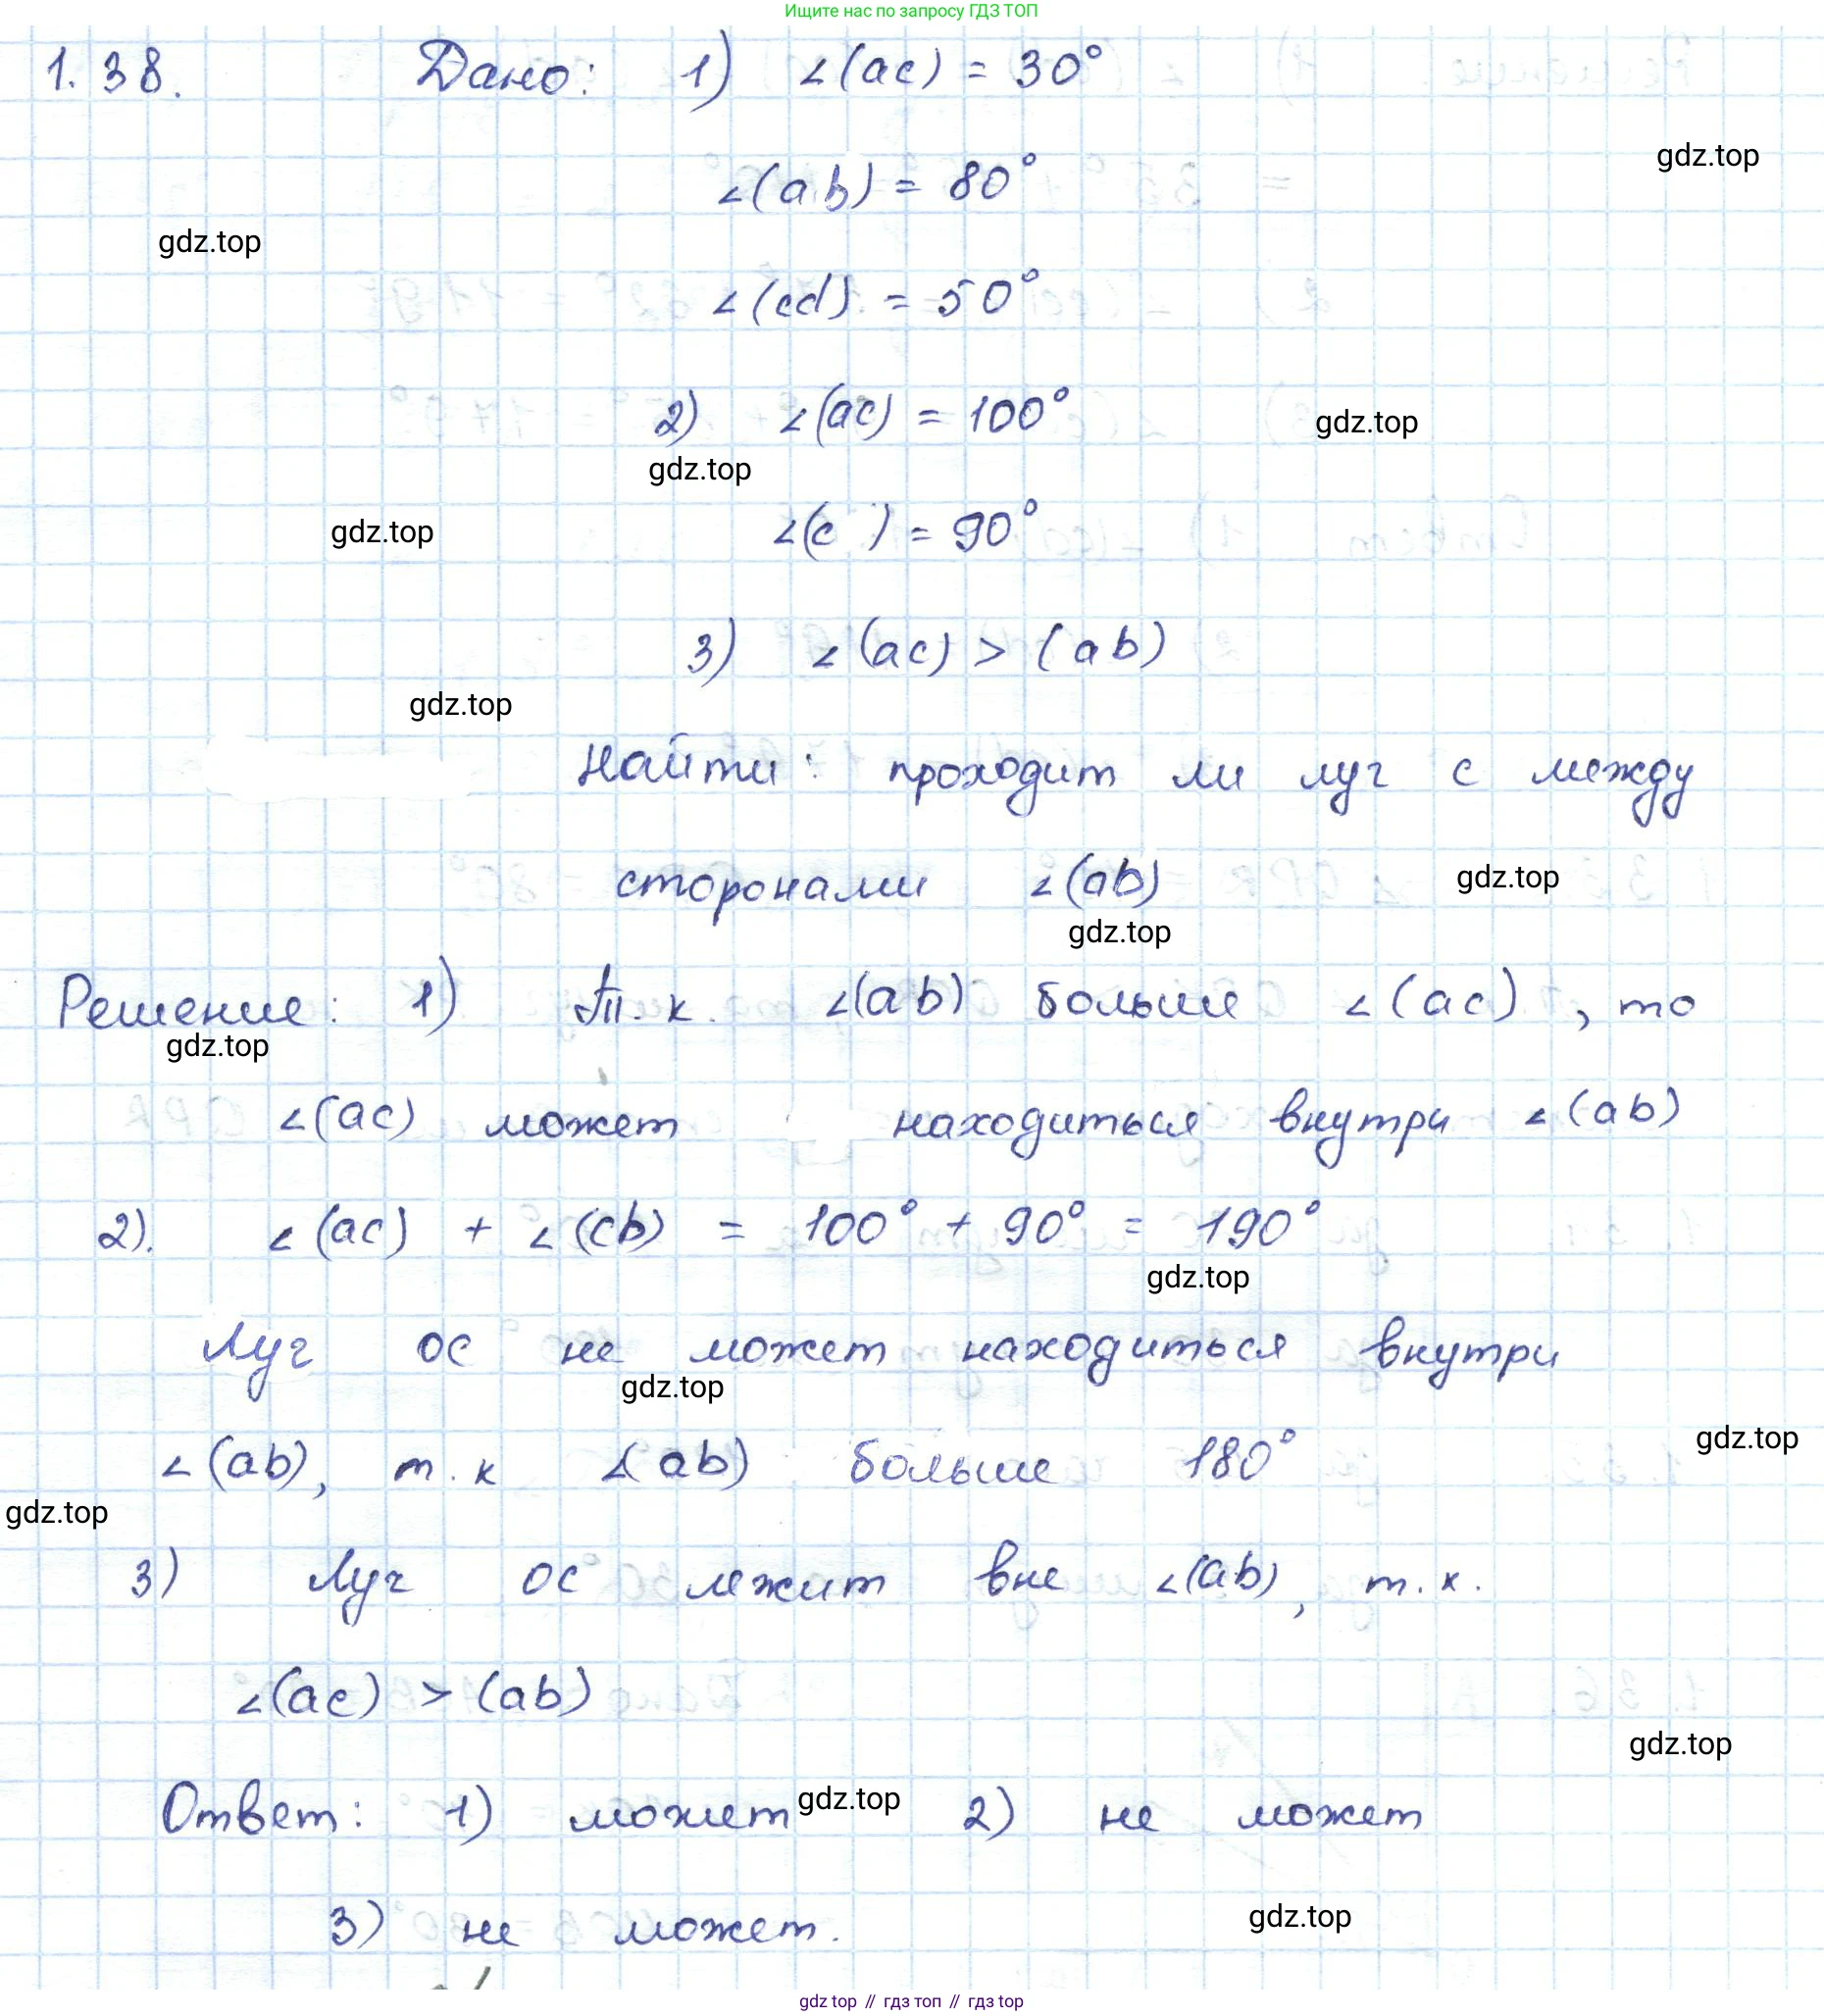 Ищите нас по запросу ГДЗ ТОП
1.38. Дано: 1) ∠(ac) = 30°
gdz.top
∠(ab) = 80°
gdz.top
∠(cd) = 50°
2) ∠(ac) = 100°
gdz.top
gdz.top
∠(c ) = 90°
gdz.top
3) ∠(ac) > (ab)
gdz.top
Найти: проходит ли луч с между
сторонами ∠(ab)
gdz.top
gdz.top
Решение: 1) Т.к. ∠(ab) больше ∠(ac), то
gdz.top
∠(ac) может находиться внутри ∠(ab)
2). ∠(ac) + ∠(cb) = 100° + 90° = 190°
gdz.top
Луч ос не может находиться внутри
gdz.top
∠(ab), т.к ∠(ab) больше 180°
gdz.top
gdz.top
3) Луч ос лежит вне ∠(ab), т.к.
∠(ac) > (ab)
gdz.top
Ответ: 1) может 2) не может
gdz.top
3) не может.
gdz.top
gdz top // гдз топ // гдз top